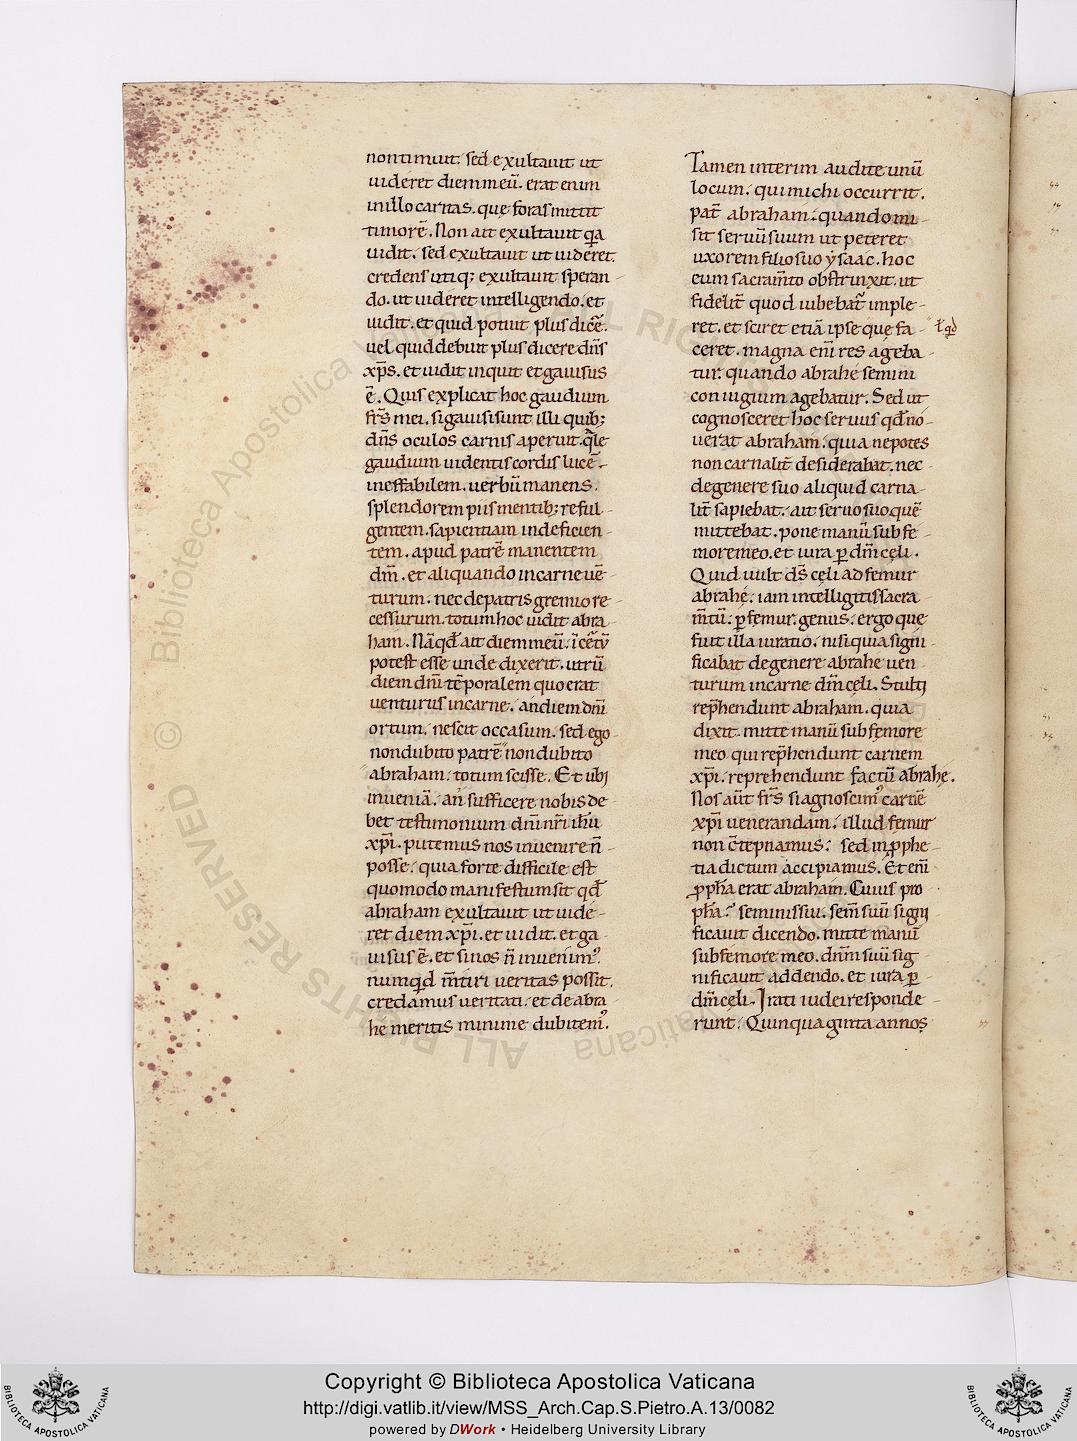 non timuit. sed exultauit ut
uideret diem meū. erat enim
in illo caritas. quę foras mittit
timorē. Non ait exultauit q̇a
uidit. sed exultauit ut uideret.
credens utiq; exultauit speran-
do. ut uideret intelligendo. et
uidit. et quid potuit plus dicē.
uel quid debuit plus dicere dn̄s
xp̄s. et uidit inquit et gauisus
ē. Quis explicat hoc gaudium
frs̄ mei. si gauisi sunt illi quib;
dn̄s oculos carnis aperuit. q̄le
gaudium uidentis cordis lucē-
ineffabilem. uerbū manens.
splendorem piis mentib; reful-
gentem. sapientiam indeficien-
tem. apud patrē manentem
dm̄. et aliquando in carne uē-
turum. nec de patris gremio re-
cessurum. totum hoc uidit abra-
ham. Nā qd̄ ait diem meū. īcertū
potest esse unde dixerit. utrū
diem dn̄i tēporalem quo erat
uenturus in carne. an diem dn̄i
ortum. nescit occasum. sed ego
non dubito patrē non dubito
abraham. totum scisse. Et ubi
inueniā. an sufficere nobis de-
bet testimonium dn̄i nr̄i ih̄u
xp̄i. putemus nos inuenire n̄
posse. quia forte difficile est
quomodo manifestum sit qd̄
abraham exultauit ut uide-
ret diem xp̄i. et uidit. et ga-
uisus ē. et si nos n̄ inuenim᾽.
numqd̄ m̄tiri ueritas possit.
credamus ueritati. et de abra-
he meritis minime dubitem᾽.
Tamen interim audite unū
locum. qui michi occurrit.
pat̄ abraham. quando mi-
sit seruū suum ut peteret
uxorem filio suo ẏsaac. hoc
eum sacram̄to obstrinxit. ut
fidelit̄ quod iubebat̄ imple-
ret. et sciret etiā ipse quę fa-
ł qd̄
ceret. magna eni̅ res ageba-
tur. quando abrahe semini
coniugium agebatur. Sed ut
cognosceret hoc seruus qd̄ no-
uerat abraham. quia nepotes
non carnalit̄ desiderabat. nec
de genere suo aliquid carna-
lit̄ sapiebat. ait seruo suo quē
mittebat. pone manū sub fe-
more meo. et iura ꝑ dm̄ cęli.
Quid uult ds̄ cęli ad femur
abrahę. iam intelligitis sacra-
m̄tū. ꝑ femur. genus. ergo que
fuit illa iuratio. nisi quia signi-
ficabat de genere abrahe uen-
turum in carne dm̄ cęli. Stulti
rep̄hendunt abraham. quia
dixit. mitte manū sub femore
meo qui rep̄hendunt carnem
xp̄i. reprehendunt factū abrahę.
Nos aut̄ frs̄ si agnoscim᾽ carnē
xp̄i uenerandam. illud femur
non c̄tempnamus. sed in ꝓphe-
tia dictum accipiamus. Et eni̅
ꝓph̄a erat abraham. Cuius pro
ph̄a. seminis sui. sem̄ suū signi-
ficauit dicendo. mitte manū
sub femore meo. dn̄m suū sig-
nificauit addendo. et iura ꝑ
dm̄ cęli. Irati iudei responde-
runt. Quinquaginta annos
© Biblioteca Apostolica Vaticana
ALL RIGHTS RESERVED
Copyright © Biblioteca Apostolica Vaticana
http://digi.vatlib.it/view/MSS_Arch.Cap.S.Pietro.A.13/0082
powered by DWork • Heidelberg University Library
BIBLIOTECA APOSTOLICA VATICANA
BIBLIOTECA APOSTOLICA VATICANA